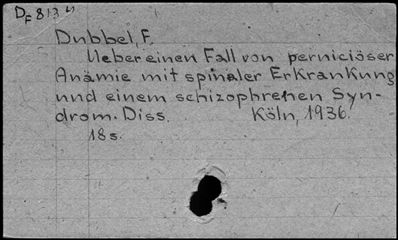 Dubbel, F.
Ueber einen Fall von perniciöser
Anämie mit spinaler Erkrankung
und einem schizophrenen Syn-
drom. Diss. Köln, 1936.
18 s.